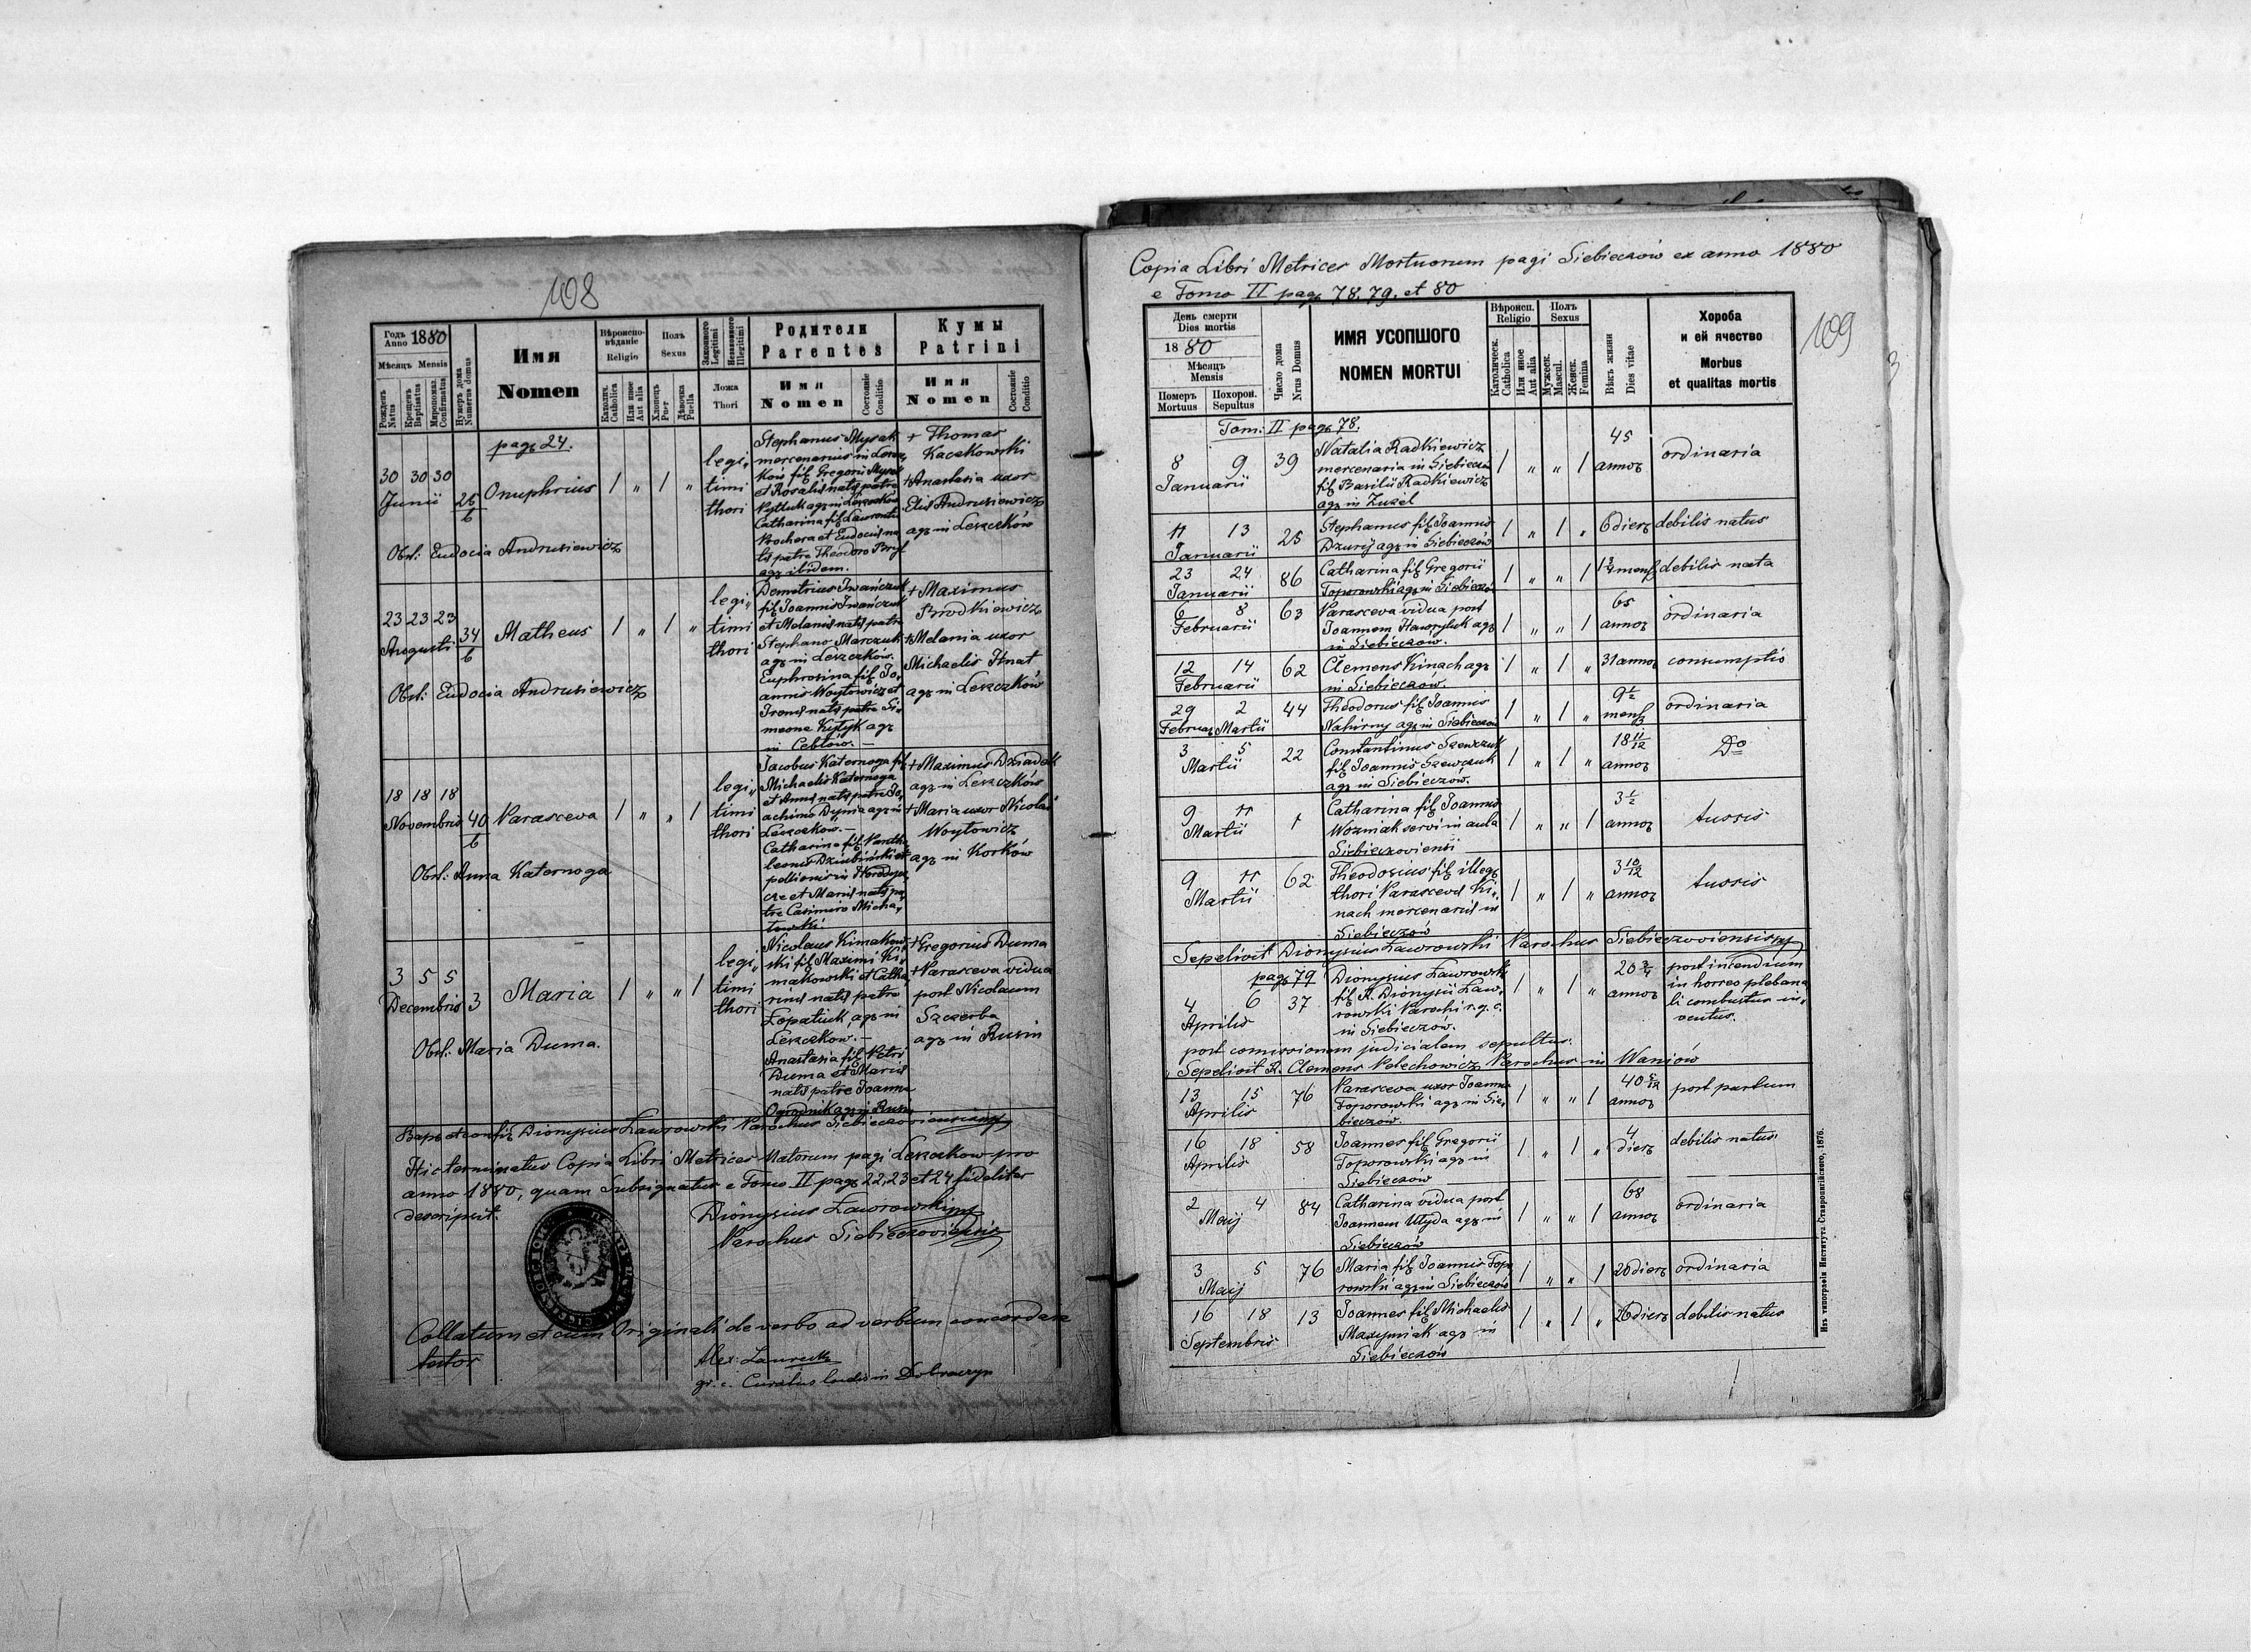 108
Годъ Anno 1880
Мѣсяцъ Mensis
Рожденъ Natus
Крещенъ Baptisatus
Миропомаз. Confirmatus
Нумеръ дома Numerus domus
Имя
Nomen
Вѣроиспо-
вѣданіе
Religio
Католич. Catholica
Или иное Aut alia
Полъ
Sexus
Хлопецъ Puer
Дѣвочка Puella
Законного Legitimi
Незаконного Illegitimi
Ложа
Thori
Родители
Parentes
Имя
Nomen
Состояніе
Conditio
Кумы
Patrini
Имя
Nomen
Состояніе
Conditio
pag 24.
30 30 30
Junii
26/6
Onuphrius
1 „ 1 „
legi„
timi
thori
Stephanus Mysak
mercenarius in Leszcz„
ków fil Gregorii Mysak
et Rosaliae natae patre
agr in Leszczków
Catharina fil Laurentii
et Eudociae na
tae patre Theodoro
agr ibidem.
+ Thomas
Kaczkowski
+ Anastasia uxor
Eliae Andrusiewicz
agr in Leszczków
Obst: Eudocia Andrusiewicz
23 23 23
Augusti
34/6
Matheus
1 „ 1 „
legi„
timi
thori
Demetrius Iwańczuk
fil Joannis Iwańczuk
et Melaniae natae patre
Stephano Marczuk
agr in Leszczków.
Euphrosina fil Jo„
annis Woytowicz et
natae patre Si„
meone agr
in Cebłów. —
+ Maximus
Brodkiewicz
+ Melania uxor
Michaelis Hnat
agr in Leszczków
Obst: Eudocia Andrusiewicz
18 18 18
Novembris
40/6
Parasceva
1 „ „ 1
legi„
timi
thori
Jacobus Katernoga fil
Michaelis Katernoga
et Annae natae patre Jo„
achimo agr in
Leszczków. —
Catharina fil Pantha
leonis
pellionis in
et Mariae natae pa„
tre Casimiro Micha„
łowski.
+ Maximus Dziadek
agr in Leszczków
+ Maria uxor Nicolai
Woytowicz
agr in Korków
Obst: Anna Katernoga
3 5 5
Decembris
3
Maria
1 „ „ 1
legi„
timi
thori
Nicolaus Kimakow„
ski fil Maximi Ki„
makowski et Catha
rinae natae patre
Łopatiuk, agr in
Leszczkow. —
Anastasia fil Petri
Duma et Mariae
natae patre Joanne
Ogrodnik agr in Rusin
+ Gregorius Duma
+ Parasceva vidua
post Nicolaum
Szczerba
agr in Rusin
Obst: Maria Duma.
Bapt et conf Dionysius Ławrowski Parochus Siebieczoviensis mp
Hic terminatur Copia Libri Metrices Natorum pagi Leszczkow pro
anno 1880, quam Subsignatus e Tomo II pag 22, 23 et 24 fideliter
descripsit.
Dionysius Ławrowski mp
Parochus Siebieczoviensis
Collatum et cum Originali de verbo ad verbum concordare
testor
Alex:
gr. c. Curatus in Dobraczyn
Copia Libri Metrices Mortuorum pagi Siebieczów ex anno 1880
e Tomo II pag 78, 79, et 80
109
3
День смерти
Dies mortis
1880
Мѣсяцъ
Mensis
Померъ
Mortuus
Похорон.
Sepultus
Число дома
Nrus Domus
ИМЯ УСОПШОГО
NOMEN MORTUI
Вѣроисп.
Religio
Католическ. Catholica
Или иное Aut alia
Полъ
Sexus
Мужеск. Mascul.
Женск. Femina
Вѣкъ жизни
Dies vitae
Хороба
и ей ячество
Morbus
et qualitas mortis
Tom: II pag 78.
8 9
Januarii
39
Natalia Radkiewicz
mercenaria in Siebieczów
fil Basilii Radkiewicz
agr in Zużel
1 „ „ 1
45
annor
ordinaria
11 13
Januarii
25
Stephanus fil Joannis
Dzuryj agr in Siebieczów
1 „ 1 „
6 dier
debilis natus
23 24
Januarii
86
Catharina fil Gregorii
Toporowski agr in Siebieczów
1 „ „ 1
1 3/4 mens
debilis nata
6 8
Februarii
63
Parasceva vidua post
Joannem Hawryluk agr
in Siebieczów.
1 „ „ 1
65
annor
ordinaria
12 14
Februarii
62
Clemens Kinach agr
in Siebieczów.
1 „ 1 „
31 annor
consumptio
29 2
Februar Martii
44
Theodorus fil Joannis
Nahirny agr in Siebieczów
1 „ 1 „
9 1/2
mens
ordinaria
3 5
Martii
22
Constantinus Szewczuk
fil Joannis Szewczuk
agr in Siebieczów.
1 „ 1 „
18 11/12
annor
Do
9 11
Martii
1
Catharina fil Joannis
Wozniak servi in aula
Siebieczoviensi
1 „ „ 1
3 1/2
annor
tussis
9 11
Martii
62
Theodosius fil illeg
thori Parascevae Ki„
nach mercenariae in
Siebieczów
1 „ 1 „
3 10/12
annor
tussis
Sepelivit Dionysius Ławrowski Parochus Siebieczoviensis mp
pag 79
4 6
Aprilis
37
Dionysius Ławrowski
fil R. Dionysii Ław„
rowski Parochi r. g. c.
in Siebieczów.
1 „ 1 „
20 3/4
annor
post incendium
in horreo plebana
li combustus in„
ventus.
post comissionem judicialem sepultus.
Sepelivit R. Clemens Pelechowicz Parochus in Waniów
13 15
Aprilis
76
Parasceva uxor Joannis
Toporowski agr in Sie„
bieczów.
1 „ „ 1
40 5/12
annor
post partum
16 18
Aprilis
58
Joannes fil Gregorii
Toporowski agr in
Siebieczów
1 „ 1 „
4
dier
debilis natus
2 4
Maij
84
Catharina vidua post
Joannem Ułyda agr in
Siebieczów
1 „ „ 1
68
annor
ordinaria
3 5
Maij
76
Maria fil Joannis Topo
rowski agr in Siebieczów
1 „ „ 1
20 dier
ordinaria
16 18
Septembris
13
Joannes fil Michaelis
Maxymiak agr in
Siebieczów
1 „ 1 „
26 dier
debilis natus
Изъ типографіи Институт. Ставропигійского, 1876.